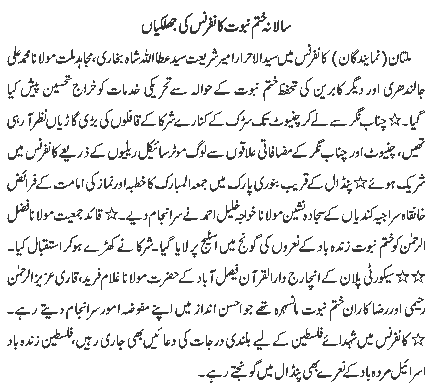 سالانہ ختم نبوت کانفرنس کی جھلکیاں
ملتان (نمایندگان) کانفرنس میں سید الاحرار امیر شریعت سید عطا اللہ شاہ بخاری، مجاہد ملت مولانا محمد علی
جالندھری اور دیگر کابرین کی تحفظ ختم نبوت کے حوالہ سے تحریکی خدمات کو خراج تحسین پیش کیا
گیا۔ ☆ چناب نگر سے لے کر چنیوٹ تک سڑک کے کنارے شرکا کے قافلوں کی بڑی گاڑیاں نظر آ رہی
تھیں، چنیوٹ اور چناب نگر کے مضافاتی علاقوں سے لوگ موٹر سائیکل ریلیوں کے ذریعے کانفرنس میں
شریک ہوئے ☆ پنڈال کے قریب بنوری پارک میں جمعہ المبارک کا خطبہ اور نماز کی امامت کے فرائض
خانقاہ سراجیہ کندیاں کے سجادہ نشین مولانا خواجہ خلیل احمد نے سرانجام دیے۔ ☆ قائد جمعیت مولانا فضل
الرحمٰن کو ختم نبوت زندہ باد کے نعروں کی گونج میں اسٹیج پر لایا گیا۔ شرکا نے کھڑے ہو کر استقبال کیا۔
☆☆ سیکورٹی پلان کے انچارج دار القرآن فیصل آباد کے حضرت مولانا غلام فرید، قاری عزیز الرحمٰن
رحیمی اور رضا کاران ختم نبوت مانسہرہ تھے جو احسن انداز میں اپنے مفوضہ امور سرانجام دیتے رہے۔
☆ کانفرنس میں شہدائے فلسطین کے لیے بلندی درجات کی دعائیں بھی جاری رہیں، فلسطین زندہ باد
اسرائیل مردہ باد کے نعرے بھی پنڈال میں گونجتے رہے۔